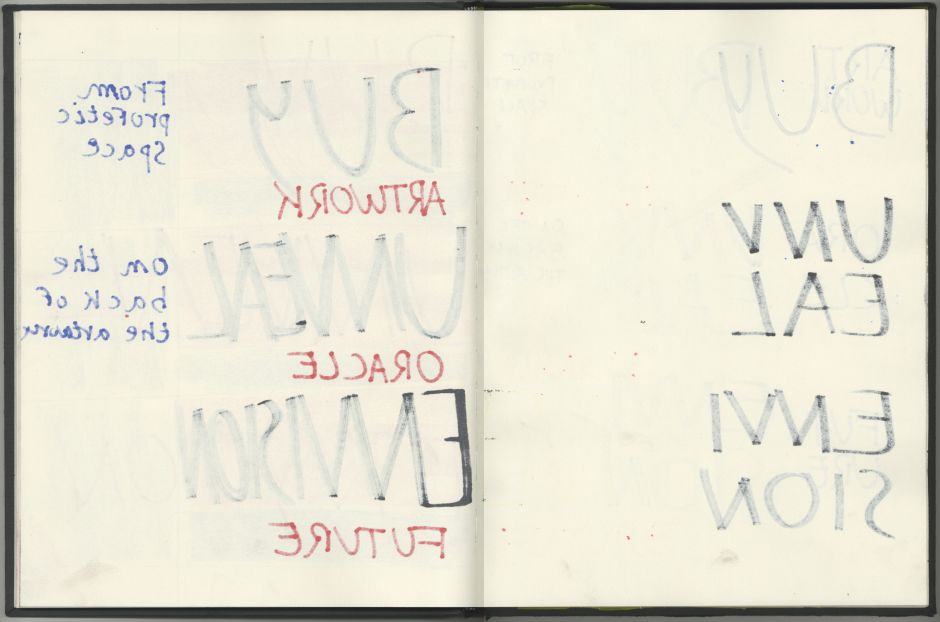 BUY
ARTWORK
UNVEAL
ORACLE
ENVISION
FUTURE
From
profetic
space
on the
back of
the
BUY
UNV
EAL
ENVI
SION